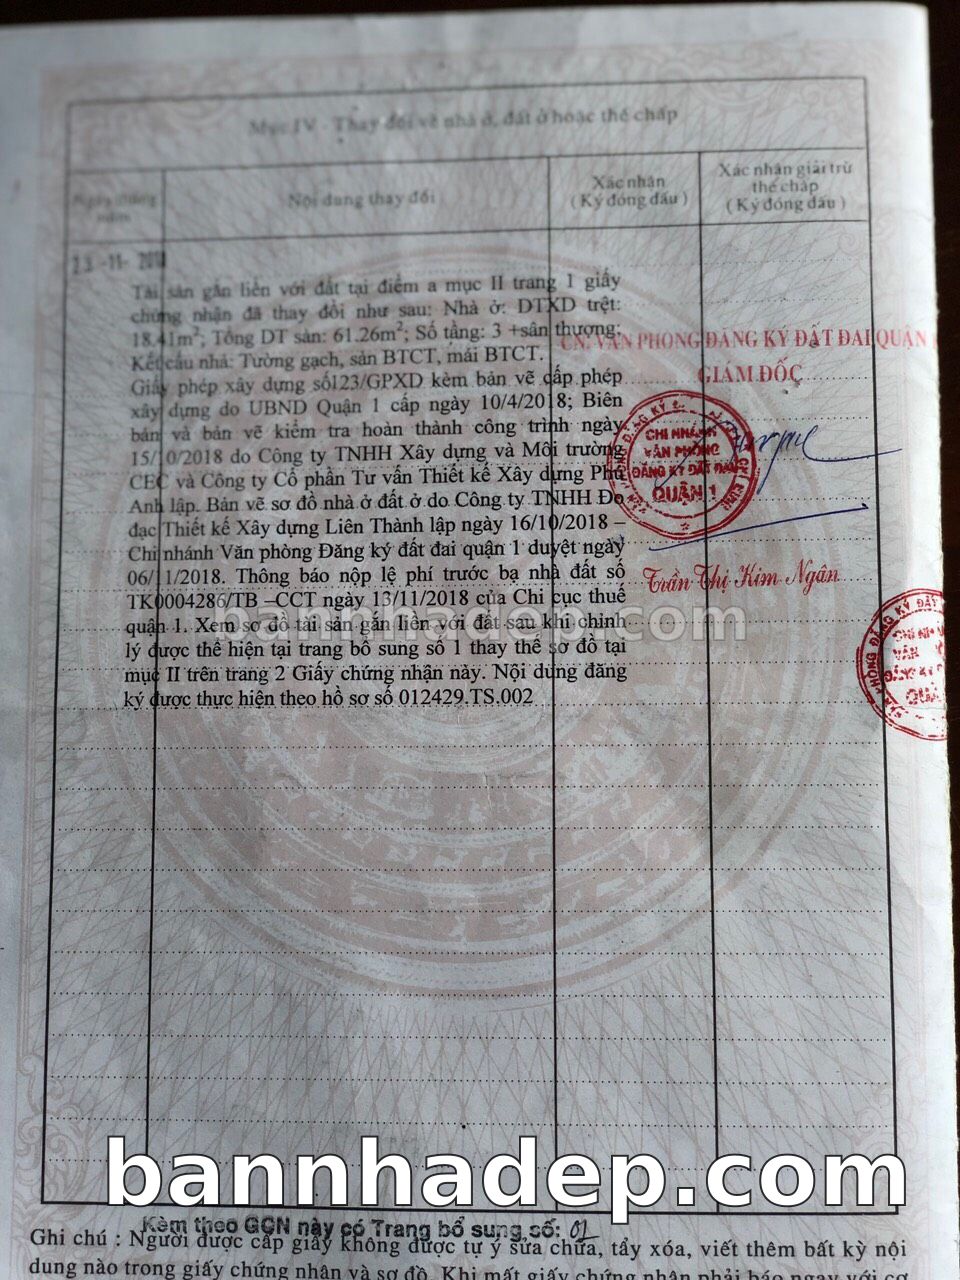 Mục IV - Thay đổi về nhà ở, đất ở hoặc thế chấp
Ngày tháng năm
Nội dung thay đổi
Xác nhận
( Ký đóng dấu )
Xác nhận giải trừ
thế chấp
( Ký đóng dấu )
23 -11- 2018
Tài sản gắn liền với đất tại điểm a mục II trang 1 giấy
chứng nhận đã thay đổi như sau: Nhà ở: DTXD trệt:
18.41m²; Tổng DT sàn: 61.26m²; Số tầng: 3 +sân thượng;
Kết cấu nhà: Tường gạch, sàn BTCT, mái BTCT.
Giấy phép xây dựng số123/GPXD kèm bản vẽ cấp phép
xây dựng do UBND Quận 1 cấp ngày 10/4/2018; Biên
bản và bản vẽ kiểm tra hoàn thành công trình ngày
15/10/2018 do Công ty TNHH Xây dựng và Môi trường
CEC và Công ty Cổ phần Tư vấn Thiết kế Xây dựng Phú
Anh lập. Bản vẽ sơ đồ nhà ở đất ở do Công ty TNHH Đo
đạc Thiết kế Xây dựng Liên Thành lập ngày 16/10/2018 –
Chi nhánh Văn phòng Đăng ký đất đai quận 1 duyệt ngày
06/11/2018. Thông báo nộp lệ phí trước bạ nhà đất số
TK0004286/TB –CCT ngày 13/11/2018 của Chi cục thuế
quận 1. Xem sơ đồ tài sản gắn liền với đất sau khi chỉnh
lý được thể hiện tại trang bổ sung số 1 thay thế sơ đồ tại
mục II trên trang 2 Giấy chứng nhận này. Nội dung đăng
ký được thực hiện theo hồ sơ số 012429.TS.002
CN. VĂN PHÒNG ĐĂNG KÝ ĐẤT ĐAI QUẬN
GIÁM ĐỐC
CHI NHÁNH
VĂN PHÒNG
ĐĂNG KÝ ĐẤT ĐAI
QUẬN 1
Trần Thị Kim Ngân
bannhadep.com
bannhadep.com
Kèm theo GCN này có Trang bổ sung số: 01
Ghi chú : Người được cấp giấy không được tự ý sửa chữa, tẩy xóa, viết thêm bất kỳ nội
dung nào trong giấy chứng nhận và sơ đồ. Khi mất giấy chứng nhận phải báo ngay với cơ